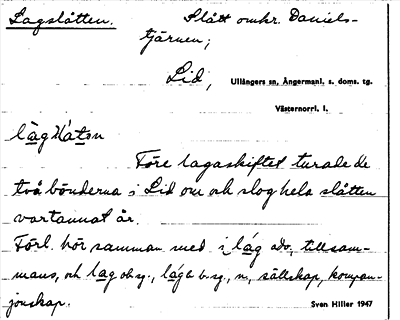 Lagslåtten. Slått omkr. Daniels-
tjärnen;
Lid, Ullångers sn, Ångermanl. s. doms. tg.
Västernorrl. l.
Före lagaskiftet turade de
två bönderna i Lid om och slog hela slåtten
vartannat år.
Förl. hör samman med i lag adv., tillsam-
mans, och lag ob. sg., b. sg., n, sällskap, kompan-
jonskap.
Sven Hiller 1947